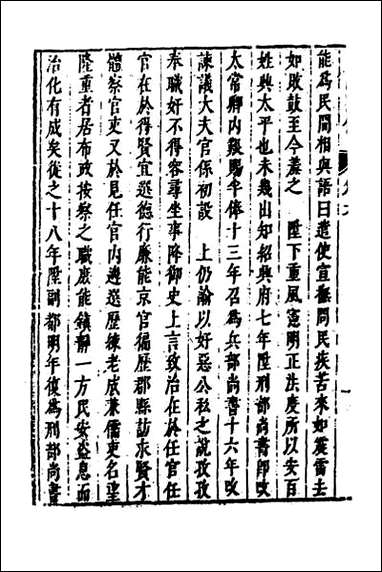 能為民間相與語曰遣使宣撫問民疾苦來如震雷去
如敗鼓至今羞之 陛下重風憲明正法度所以安百
姓興太平也未幾出知紹興府七年陞刑部尚書郎改
太常卿內艱賜半俸十三年召為兵部尚書十六年改
諫議大夫官係初設 上仍諭以好惡公私之說孜孜
奉職奸不得容尋坐事降御史上言致治在於任官任
官在於得賢宜選德行廉能京官徧歷郡縣訪求賢才
體察官吏又於見任官內遴選歷練老成兼儒吏名望
隆重者居布政按察之職庶能鎮靜一方民安盜息而
治化有成矣從之十八年陞副都明年復為刑部尚書